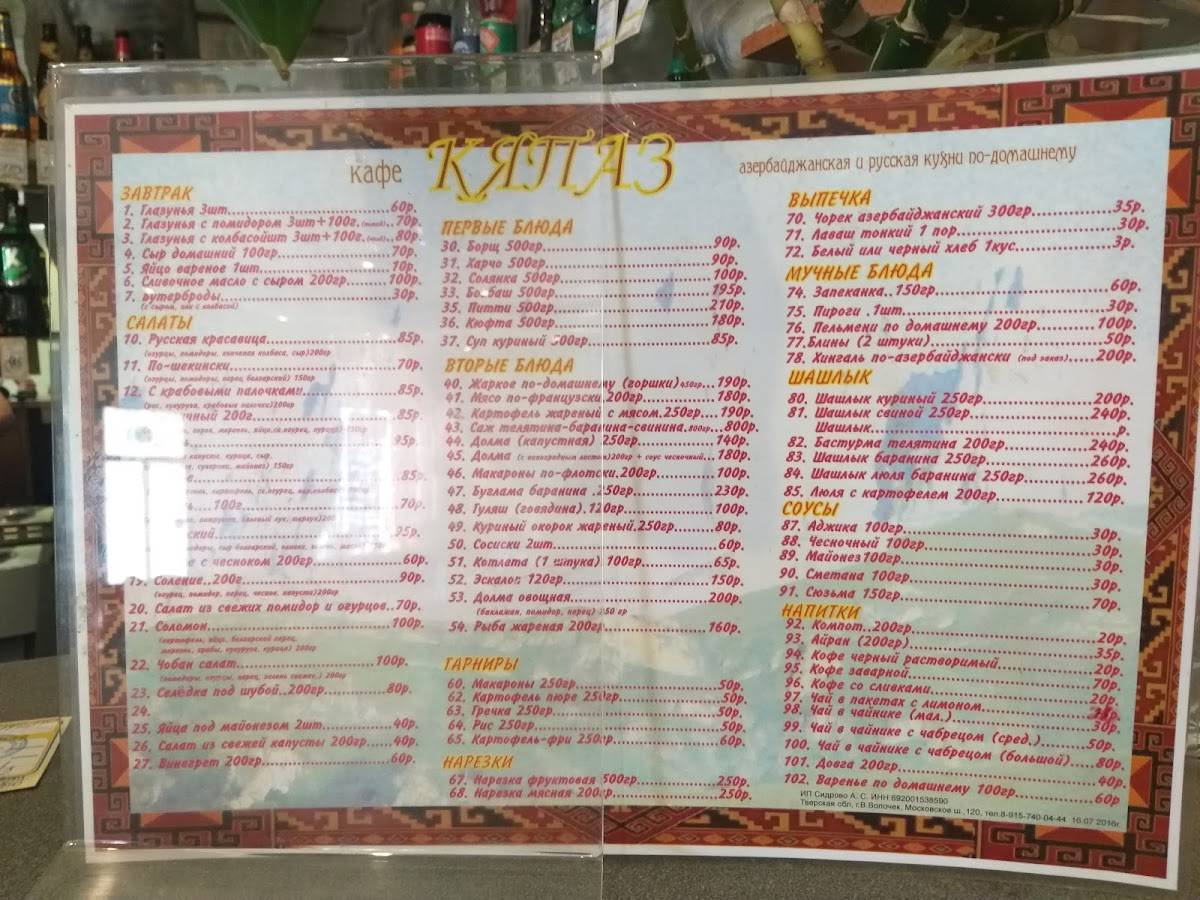 кафе КЯПАЗ
азербайджанская и русская кухни по-домашнему
ЗАВТРАК
1. Глазунья 3шт...60р.
2. Глазунья с помидором 3шт+100г....70р.
3. Глазунья с колбасойшт 3шт+100г....80р.
4. Сыр домашний 100гр...70р.
5. Яйцо вареное 1шт...10р.
6. Сливочное масло с сыром 200гр...100р.
7. Бутерброды...30р.
(с сыром, или с колбасой)
САЛАТЫ
10. Русская красавица...85р.
(огурцы, помидоры, копченая колбаса, сыр)200гр
11. По-шекински...70р.
(огурцы, помидоры, перец болгарский) 150гр
12. С крабовыми палочками...85р.
(рис, кукуруза, крабовые палочки)200гр
200г...85р.
95р.
150гр
...100г...70р.
95р.
с чесноком 200гр...60р.
19. Соление..200г...90р.
(огурец, помидор, перец, чеснок, капуста)200гр
20. Салат из свежих помидор и огурцов..70р.
21. Соломон...100р.
22. Чобан салат...100р.
(помидоры, огурцы, перец, зелень свежая.) 200гр
23. Селёдка под шубой..200гр...80р.
24.
25. Яйца под майонезом 2шт...40р.
26. Салат из свежей капусты 200гр...40р.
27. Винегрет 200гр...60р.
ПЕРВЫЕ БЛЮДА
30. Борщ 500гр...90р.
31. Харчо 500гр...90р.
32. Солянка 500гр...100р.
33. Бозбаш 500гр...195р.
35. Питти 500гр...210р.
36. Кюфта 500гр...180р.
37. Суп куриный 500гр...85р.
ВТОРЫЕ БЛЮДА
40. Жаркое по-домашнему (горшки)450гр...190р.
41. Мясо по-французски.200гр...180р.
42. Картофель жареный с мясом.250гр...190р.
43. Саж телятина-баранина-свинина.800гр...800р.
44. Долма (капустная) 250гр...140р.
45. Долма (с виноградным листом)200гр + соус чесночный...180р.
46. Макароны по-флотски.200гр...100р.
47. Буглама баранина .250гр...230р.
48. Гуляш (говядина).120гр...100р.
49. Куриный окорок жареный.250гр...80р.
50. Сосиски 2шт...60р.
51. Котлета (1 штука) 100гр...65р.
52. Эскалоп 120гр...150р.
53. Долма овощная...200р.
(баклажан, помидор, перец) 250 гр
54. Рыба жареная 200гр...160р.
ГАРНИРЫ
60. Макароны 250гр...50р.
62. Картофель пюре 250гр...50р.
63. Гречка 250гр...50р.
64. Рис 250гр...50р.
65. Картофель-фри 250гр...60р.
НАРЕЗКИ
67. Нарезка фруктовая 500гр...250р.
68. Нарезка мясная 200гр...250р.
ВЫПЕЧКА
70. Чорек азербайджанский 300гр...35р.
71. Лаваш тонкий 1 пор...30р.
72. Белый или черный хлеб 1кус...3р.
МУЧНЫЕ БЛЮДА
74. Запеканка..150гр...60р.
75. Пироги .1шт...30р.
76. Пельмени по домашнему 200гр...100р.
77.Блины (2 штуки)...50р.
78. Хингаль по-азербайджански (под заказ)...200р.
ШАШЛЫК
80. Шашлык куриный 250гр...200р.
81. Шашлык свиной 250гр...240р.
Шашлык...р.
82. Бастурма телятина 200гр...240р.
83. Шашлык баранина 250гр...260р.
84. Шашлык люля баранина 250гр...260р.
85. Люля с картофелем 200гр...120р.
СОУСЫ
87. Аджика 100гр...30р.
88. Чесночный 100гр...30р.
89. Майонез100гр...30р.
90. Сметана 100гр...30р.
91. Сюзьма 150гр...70р.
НАПИТКИ
92. Компот..200гр...20р.
93. Айран (200гр)...35р.
94. Кофе черный растворимый...20р.
95. Кофе заварной...70р.
96. Кофе со сливками...20р.
97. Чай в пакетах с лимоном...
98. Чай в чайнике (мал.)...30р.
99. Чай в чайнике с чабрецом (сред.)...50р.
100. Чай в чайнике с чабрецом (большой)...80р.
101. Довга 200гр...40р.
102. Варенье по домашнему 100гр...60р
ИП Сидрово А. С. ИНН 692001538590
Тверская обл, г.В.Волочек, Московское ш.,120, тел.8-915-740-04-44 16.07.2016г.